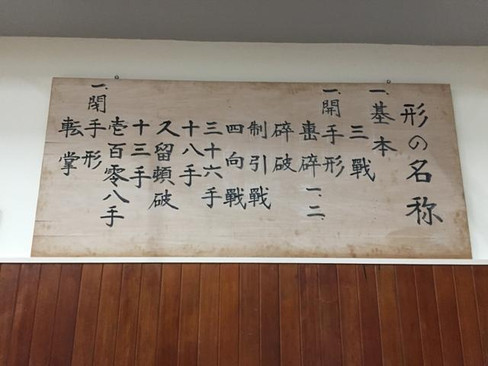 形の名称
一、基本
三戰
一、開手形
撃碎一、二、
碎破
制引戰
四向戰
三十六手
十八手
久留頓破
十三手
壱百零八手
一、閉手形
転掌